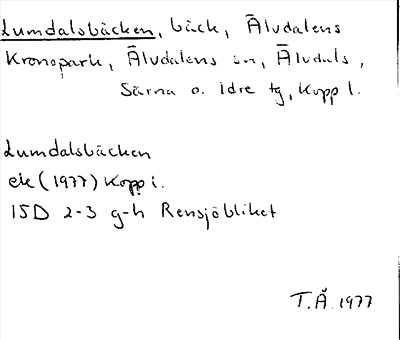 Lumdalsbäcken, bäck, Älvdalens
Kronopark, Älvdalens sn, Älvdals,
Särna o. Idre tg, Kopp l.
Lumdalsbäcken
ek (1977) Kopp i.
15D 2-3 g-h Rensjöbliket
T.Å. 1977